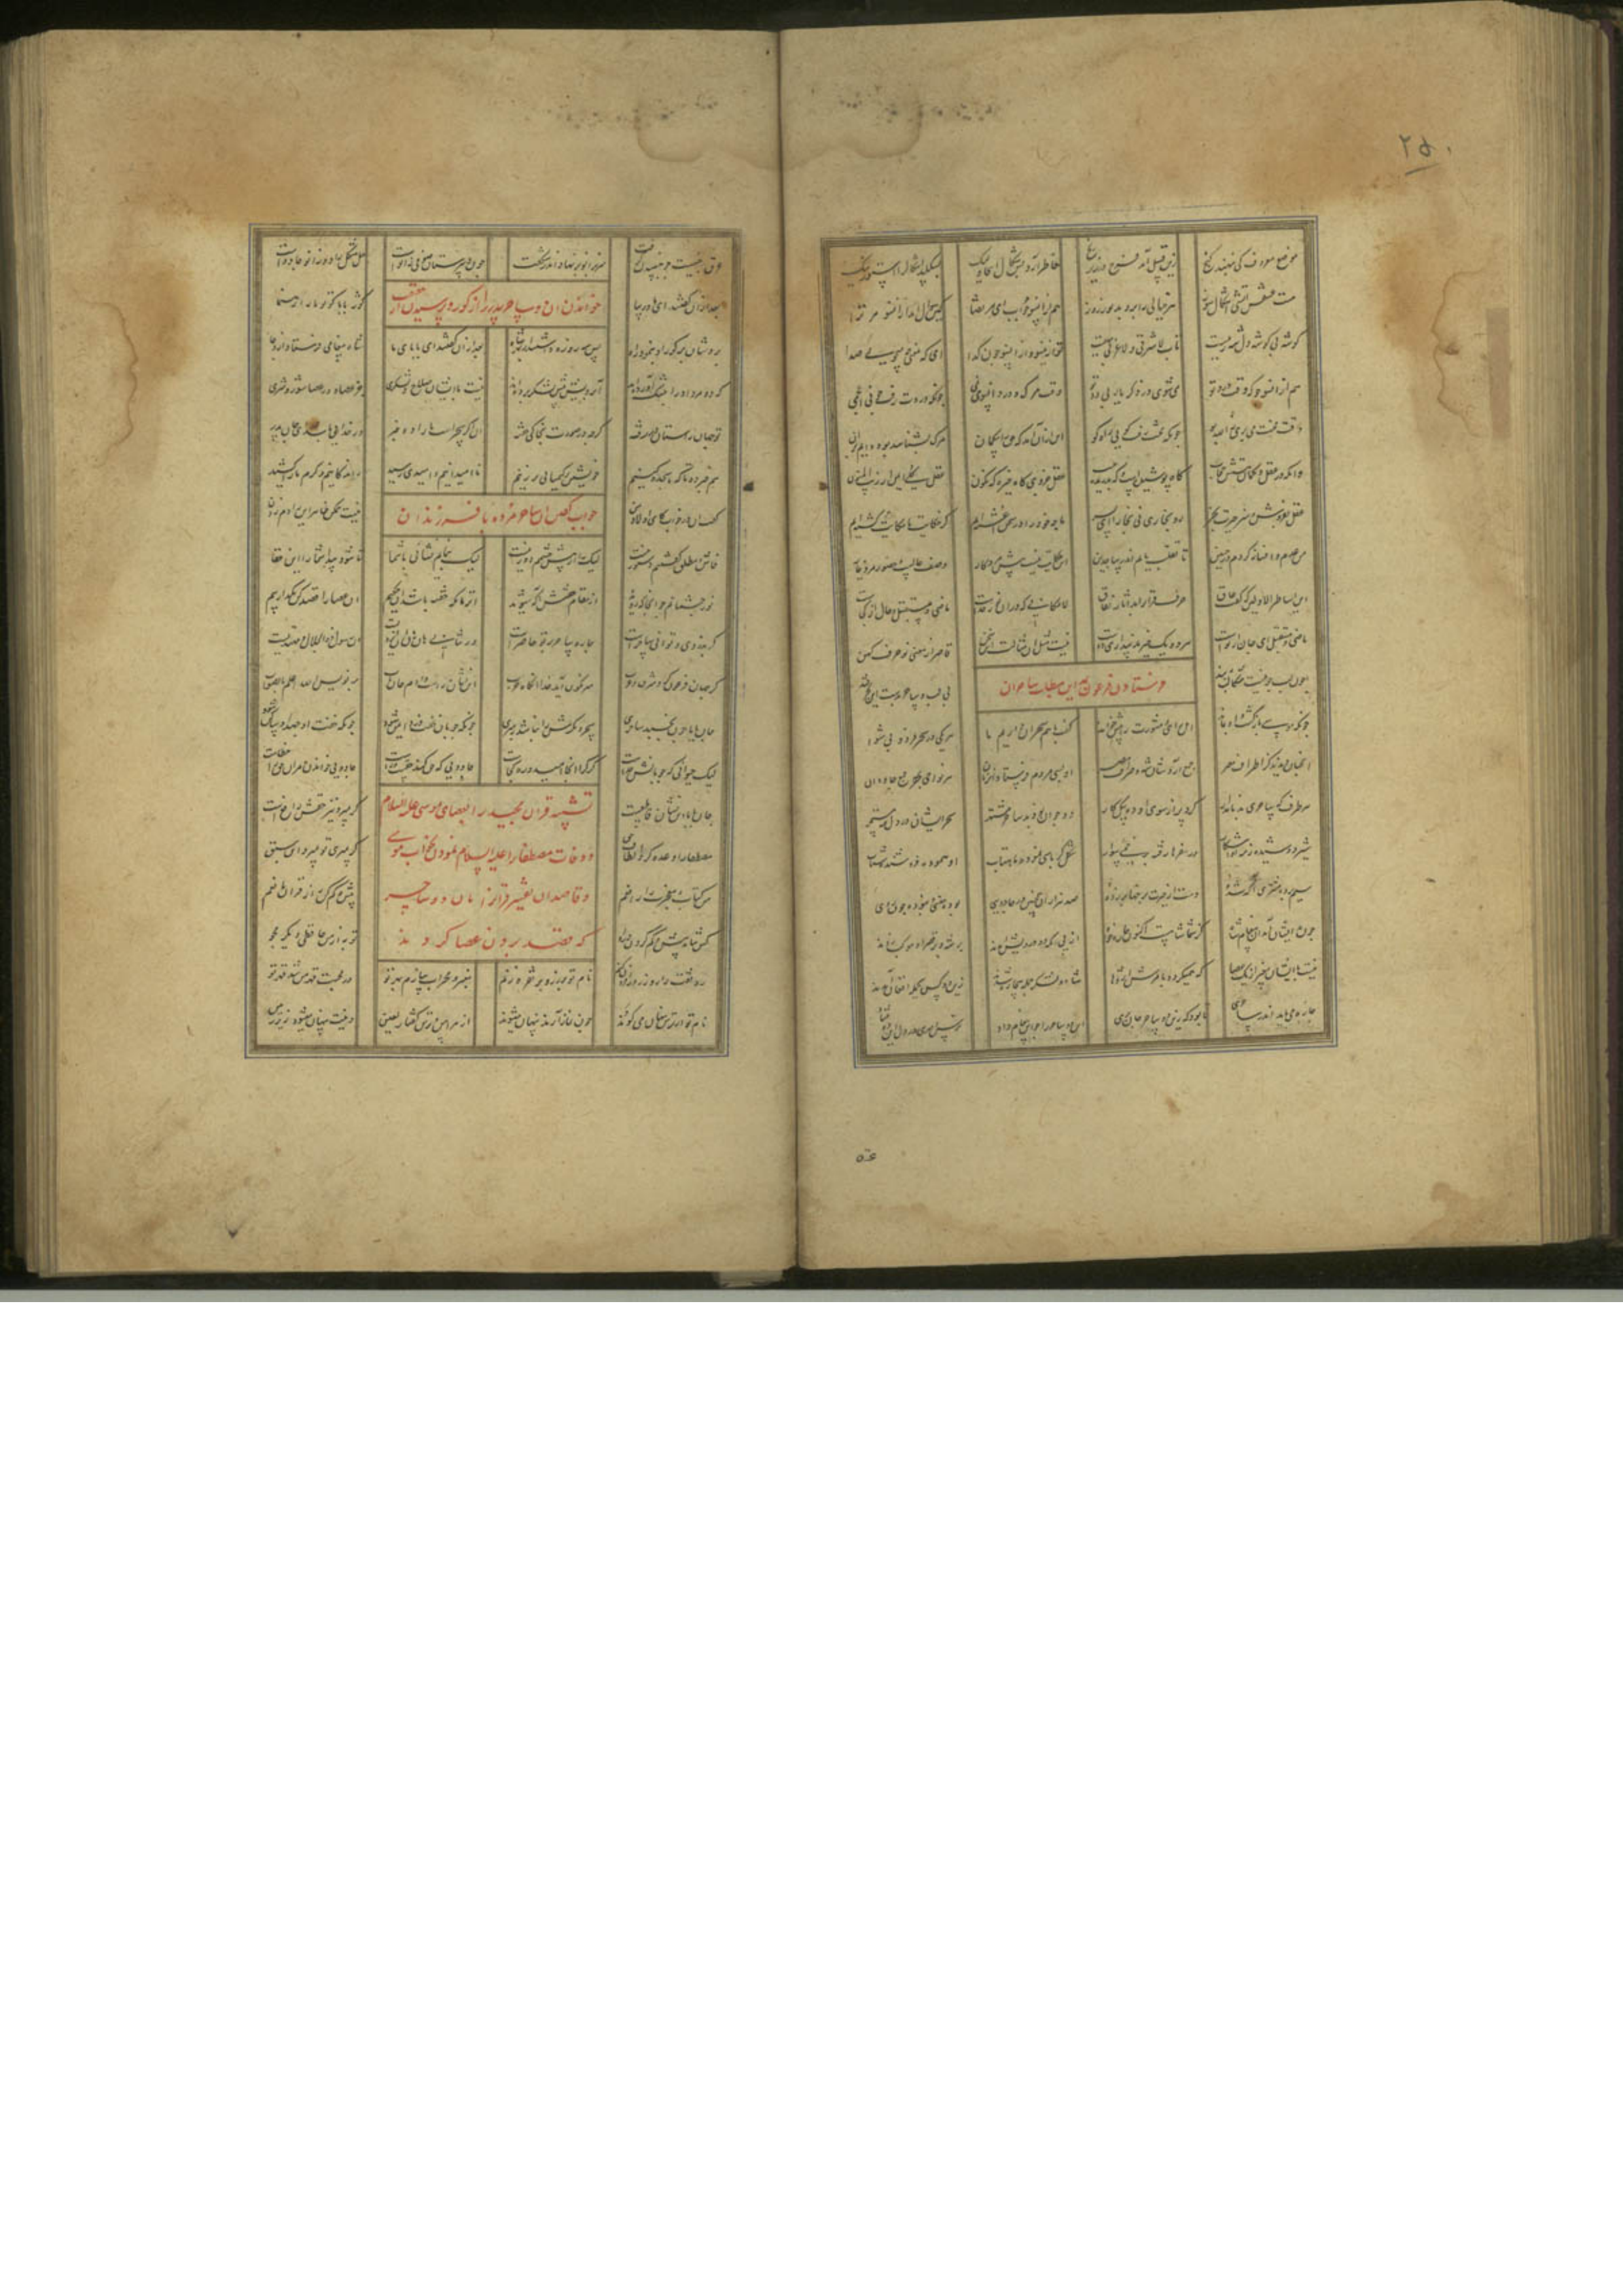 موضع معروف کی بنهند گنج
زین قبیل آمد فرج در زیر رنج
خاطر آرد بس شکال لیک
بسکلد اشکال را استور نیک
هست عشقش آتشی اشکال سوز
هر خیالی را بروبد نور روز
هم از آنسو جو جواب ای مرتضا
کین سوال آمد از آنسو مر ترا
گوشه بی گوشه دل شه رهیست
تاب لا شرقی و لا غربی مهیست
تو ازین سو و از آن سو چون گدا
ای که معنی چه میجویی صدا
هم از آنسو جو که وقت درد تو
می شوی در ذکر یا ربی دو تو
وقت مرگ و درد آنسو می نمی
چونکه دردت رفت چونی اعجمی
وقت محنت می بری الله بو
چونکه محنت رفت گویی راه کو
این از آن آمد که حق را بی گمان
هر که بشناسد بود دایم بر آن
وانکه در عقل و گمان هستش حجاب
گاه پوشیدست و گه بدریده جیب
عقل جزوی گاه خیره گه نگون
عقل کلی ایمن از ریب المنون
عقل بفروش و هنر حیرت بخر
رو بخاری نی بخارا ای پسر
ما چو خود را در سخن آغشته ایم
کز حکایت ما حکایت گشته ایم
من عدم و افسانه گردم در حنین
تا تقلب یابم اندر ساجدین
این حکایت نیست پیش مرد کار
وصف حالست و حضور یار غار
آن اساطیر الاولین که گفت عاق
حرف قرآن را بد آثار نفاق
لامکانی که درو نور خداست
ماضی و مستقبل و حال از کجاست
ماضی و مستقبل ای جان از تو است
هر دو یک چیزند پنداری دو است
نیست مثل آن مثالست این سخن
قاصر از معنی نو حرف کهن
چون لب جو نیست مشکا لب ببند
بی لب و ساحل بدست این بحر قند
فرستادن فرعون بمداین بطلب ساحران
اهل رای و مشورت را پیش خواند
گفت با هم ساحران داریم ما
هر یکی در سحر فرد و پیشوا
آنچنان دیدند کز اطراف مصر
جمع آردشان شه و صراف مصر
او بسی مردم فرستاد آن زمان
هر نواحی بهر جمع جادوان
هر طرف که ساحری بد نامدار
کرد پران سوی او ده پیک کار
دو جوان بودند ساحر مشتهر
سحر ایشان در دل مه مستمر
شیر دوشیده ز مه فاش آشکار
در سفرها رفته بر خمی سوار
شکل کرباسی نموده ماهتاب
سیم برده مشتری آگه شده
دست از حسرت برخها بر زده
صد هزاران همچنین در جادویی
چون بدیشان آمد آن پیغام شاه
کز شما شاهست اکنون چاره خواه
از پی آنکه دو درویش آمدند
بر شه و بر قصر او موکب زدند
نیست با ایشان بغیر از یک عصا
که همیگردد بامرش اژدها
شاه و لشکر جمله بیچاره شدند
زین دو کس جمله بافغان آمدند
چاره می باید اندر ساحری
تا بود که زین دو ساحر جان بری
آن دو ساحر را چو این پیغام داد
ترس و مهری در دل هر دو فتاد
عرق جنسیت چو جنبیدن گرفت
سر بزانو بر نهاد اندر شگفت
چون دبیرستان صوفی زانو است
حل مشکل را دو زانو جادو است
خواندن آن دو ساحر پدر را از گور و پرسیدن از حقیقت
بعد از آن گفتند ای مادر بیا
گور بابا کو تو ما را ره نما
بردشان بر گور او بنمود راه
پس سه روزه داشتند از بهر شاه
بعد از آن گفتند ای بابا بما
شاه پیغامی فرستاد از وجا
که دو مرد او را بتنگ آورده اند
آب رویش پیش لشکر برده اند
نیست با ایشان سلاح و لشکری
جز عصا و در عصا شور و شری
تو جهان راستان در رفته
گرچه در صورت بخاکی خفته
آن اگر سحرست ما را ده خبر
ور خدایی باشد ای جان پدر
هم خبر ده تا که ما سجده کنیم
خویشتن بر کیمیایی بر زنیم
نا امیدانیم و امیدی رسید
راندگانیم و کرم ما را کشید
جواب گفتن آن ساحر مرده با فرزندان
گفتشان در خواب کای اولاد من
نیست ممکن ظاهر این را دم زدن
فاش و مطلق گفتنم دستور نیست
لیک راز از پیش چشمم دور نیست
لیک بنمایم نشانی با شما
تا شود پیدا شما را این خفا
نور چشمانم چو آنجا که روید
از مقام خفتنش آگه شوید
آن زمان که خفته باشد آن حکیم
آن عصا را قصد کن بگذار بیم
گر بدزدی و توانی ساحرست
چاره ساحر بر تو حاضرست
ور نتانی هان و هان آن ایزدیست
او رسول ذو الجلال و مهتدیست
گر جهان فرعون گیرد شرق و غرب
سر نگون آید خدا آنگاه حرب
این نشان راست دادم جان باب
بر نویس الله اعلم بالصواب
جان بابا چون بخسبد ساحری
سحر و مکرش را نباشد رهبری
چونکه چوپان خفت گرگ ایمن شود
چونکه خفت او جهد او ساکن شود
لیک حیوانی که چوپانش خداست
گرگ را آنجا امید و ره کجاست
جادویی که حق کند حقست و راست
جادویی خواندن مر آن حق را خطاست
جان بابا این نشان قاطعست
گر بمیرد نیز حقش رافعست
تشبیه قرآن مجید را بعصای موسی علیه السلام
و وفات مصطفی را علیه السلام نمودن بخواب موسی
و قاصدان تغییر قرآن را با آن دو ساحر بچه
که قصد بردن عصا کردند
مصطفی را وعده کرد الطاف حق
گر بمیری تو نمیرد این سبق
من کتاب و معجزت را رافعم
بیش و کم کن را ز قرآن مانعم
کس نتاند بیش و کم کردن درو
تو به از من حافظی دیگر مجو
رونقت را روز روز افزون کنم
نام تو بر زر و بر نقره زنم
منبر و محراب سازم بهر تو
در محبت قهر من شد قهر تو
نام تو از ترس پنهان می گویند
چون نماز آرند پنهان میشوند
از هراس و ترس کفار لعین
دینت پنهان میشود زیر زمین
۲۵۰